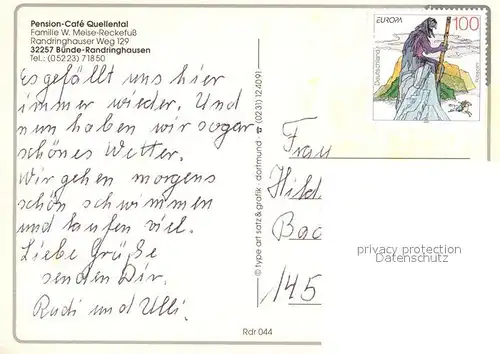 Pension-Café Quellental
Familie W. Meise-Reckefuß
Randringhauser Weg 129
32257 Bünde-Randringhausen
Tel.: (05223) 71850
Es gefällt uns hier
immer wieder. Und
nun haben wir sogar
schönes Wetter.
Wir gehen morgens
schön schwimmen
und laufen viel.
Liebe Grüße
senden Dir
Rudi und Ulli.
© type art satz & grafik · dortmund · ☎ (0231) 124091
Rdr 044
EUROPA
100
Deutschland
Rübezahl
Frau
Hild
Bac
145
privacy protection
Datenschutz